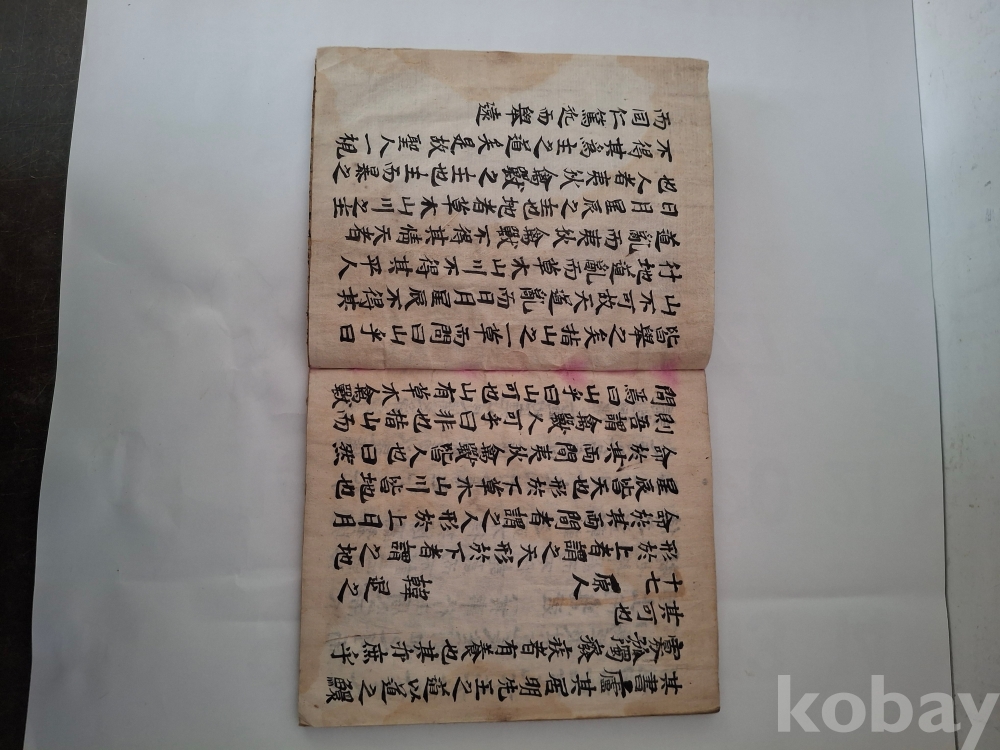 其書廬其居明先王之道以道之鰥
寡孤獨癈疾者有養也其亦庶乎
其可也
十七 原人 韓退之
形於上者謂之天形於下者謂之地
命於其兩間者謂之人形於上日月
星辰皆天也形於下草木山川皆地也
命於其兩間夷狄禽獸皆人也曰然
則吾謂禽獸人可乎曰非也指山而
問焉曰山乎曰山可也山有草木禽獸
皆舉之矣指山之一草而問曰山乎曰
山不可故天道亂而日月星辰不得其
行地道亂而草木山川不得其平人
道亂而夷狄禽獸不得其情天者
日月星辰之主也地者草木山川之主
也人者夷狄禽獸之主也主而暴之
不得其為主之道矣是故聖人一視
而同仁篤近而舉遠
kobay